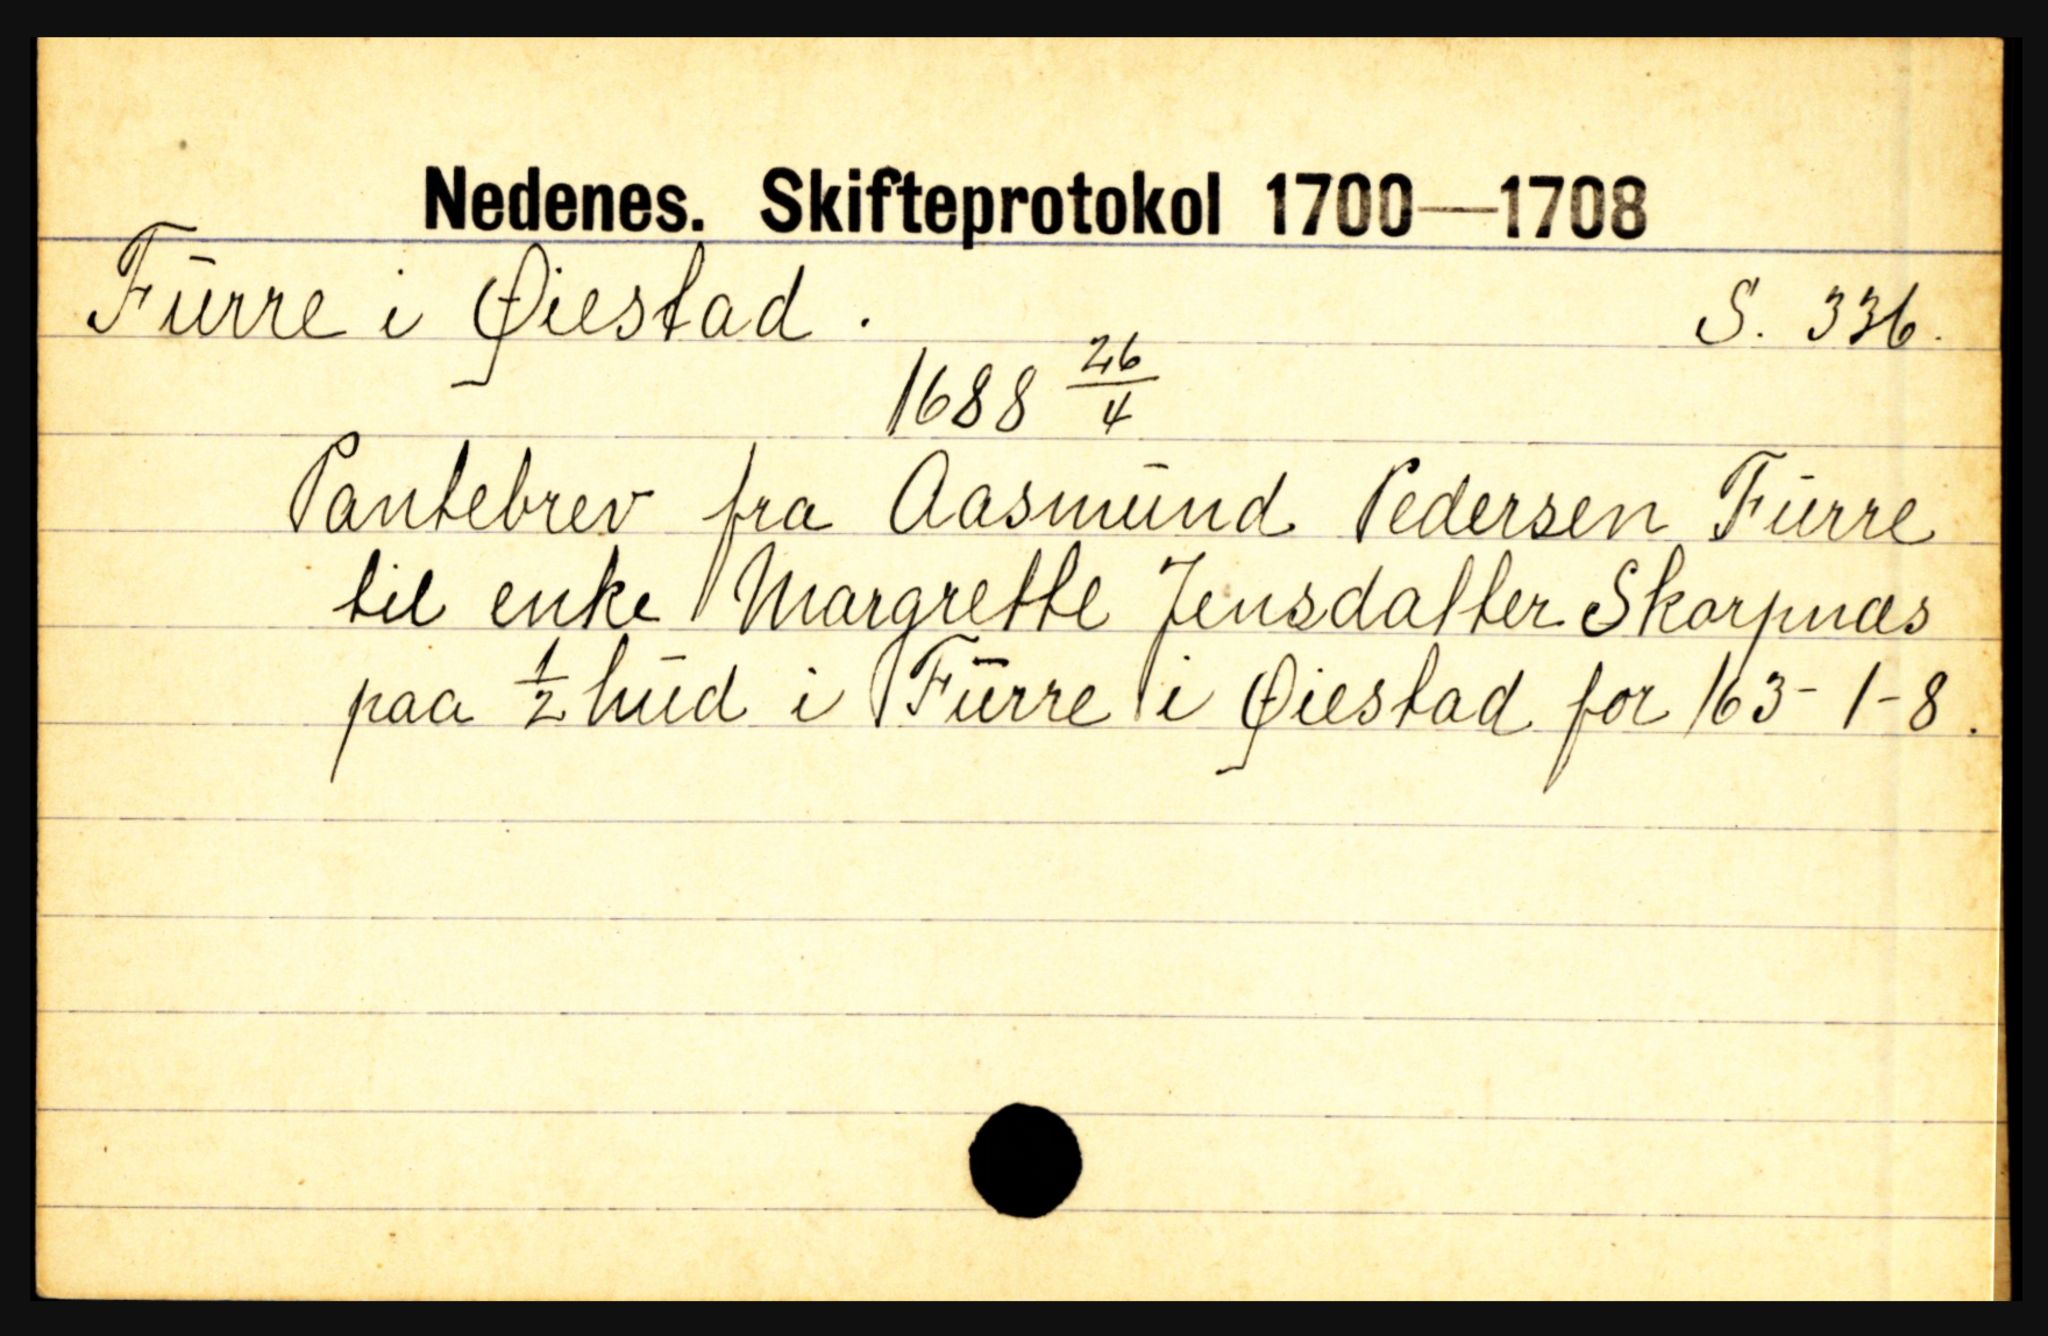 Nedenes. Skifteprotokol 1700—1708
Furre i Øiestad. S. 336.
1688 26/4
Pantebrev fra Aasmund Pedersen Furre
til enke Margrethe Jensdatter Skarpnæs
paa 1/2 hud i Furre i Øiestad for 163-1-8.